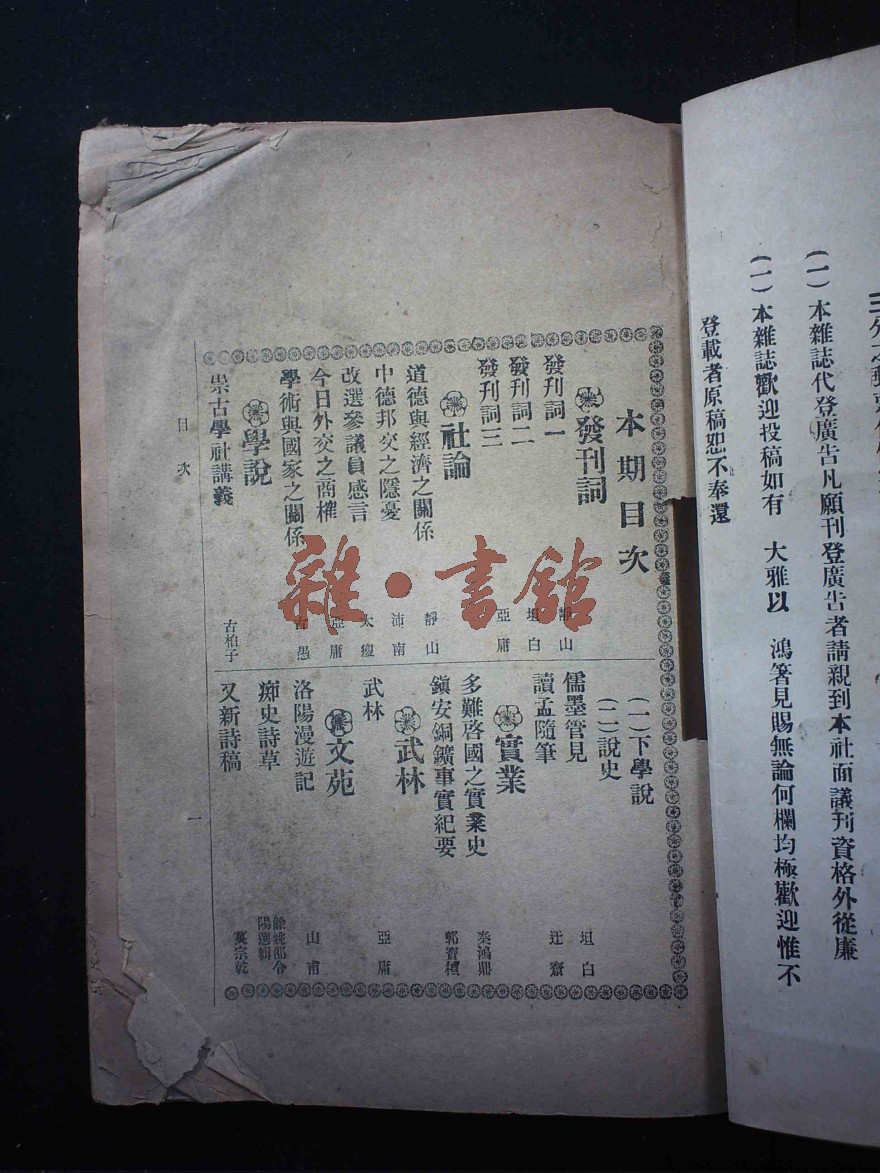 (一)本雜誌代登廣告凡願刊登廣告者請親到本社面議刊資格外從廉
(一)本雜誌歡迎投稿如有 大雅以 鴻箸見賜無論何欄均極歡迎惟不
登載者原稿恕不奉還
本期目次
發刊詞
發刊詞一 靜山
發刊詞二 坦白
發刊詞三 亞庸
社論
道德與經濟之關係 靜山
中德邦交之隱憂 沛南
改選參議員感言 太瘦
今日外交之商榷 亞庸
學術與國家之關係 古愚
學說
崇古學社講義 古柏子
(一)下學說
(二)說史
儒墨管見 坦白
讀孟隨筆 迂齋
實業
多難啓國之實業史 秦鴻鼎
鎭安銅鑛事實紀要 郭寶
武林
武林 亞庸
文苑
洛陽漫遊記 山甫
痴史詩草 餘姚邵令陽選輯
又新詩稿 宗乾
目次 一
雜·書館